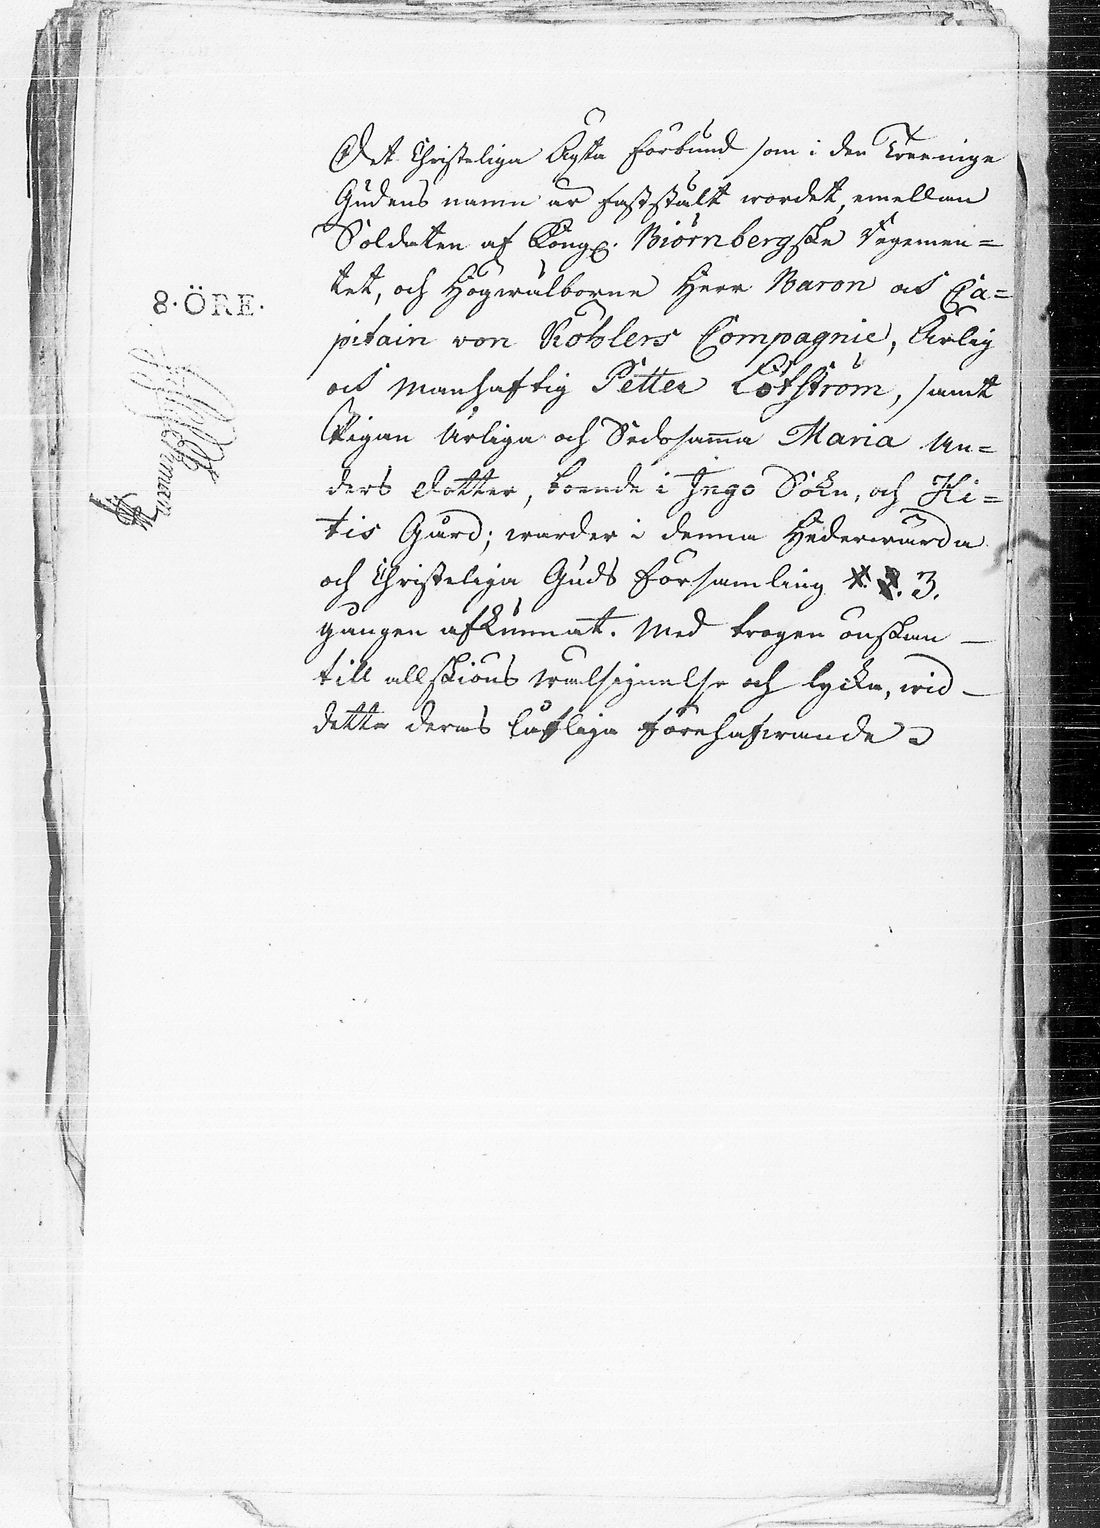 8·ÖRE·
Det Christeliga Ächta förbund som i den Treeninge
Gudens namn är fastställt wordet, emellan
Soldaten af Kongl. Biörnbergske Regemen=
tet, och Högwälborne Herr Baron och Ca=
pitain von Köhlers Compagnie, Ärlig
och Manhaftig Petter Löfström, samt
Pigan Ärliga och Dedesamma Maria An=
ders dotter, boende i Ingo Sokn, och Ki=
tis Gård; warder i denna Hederwärda
och Christeliga Guds församling 3.
gången afkunnat. Med trogen önskan
till allskiöns wälsignelse och lycka, wid
detta deras lofliga förehafwande